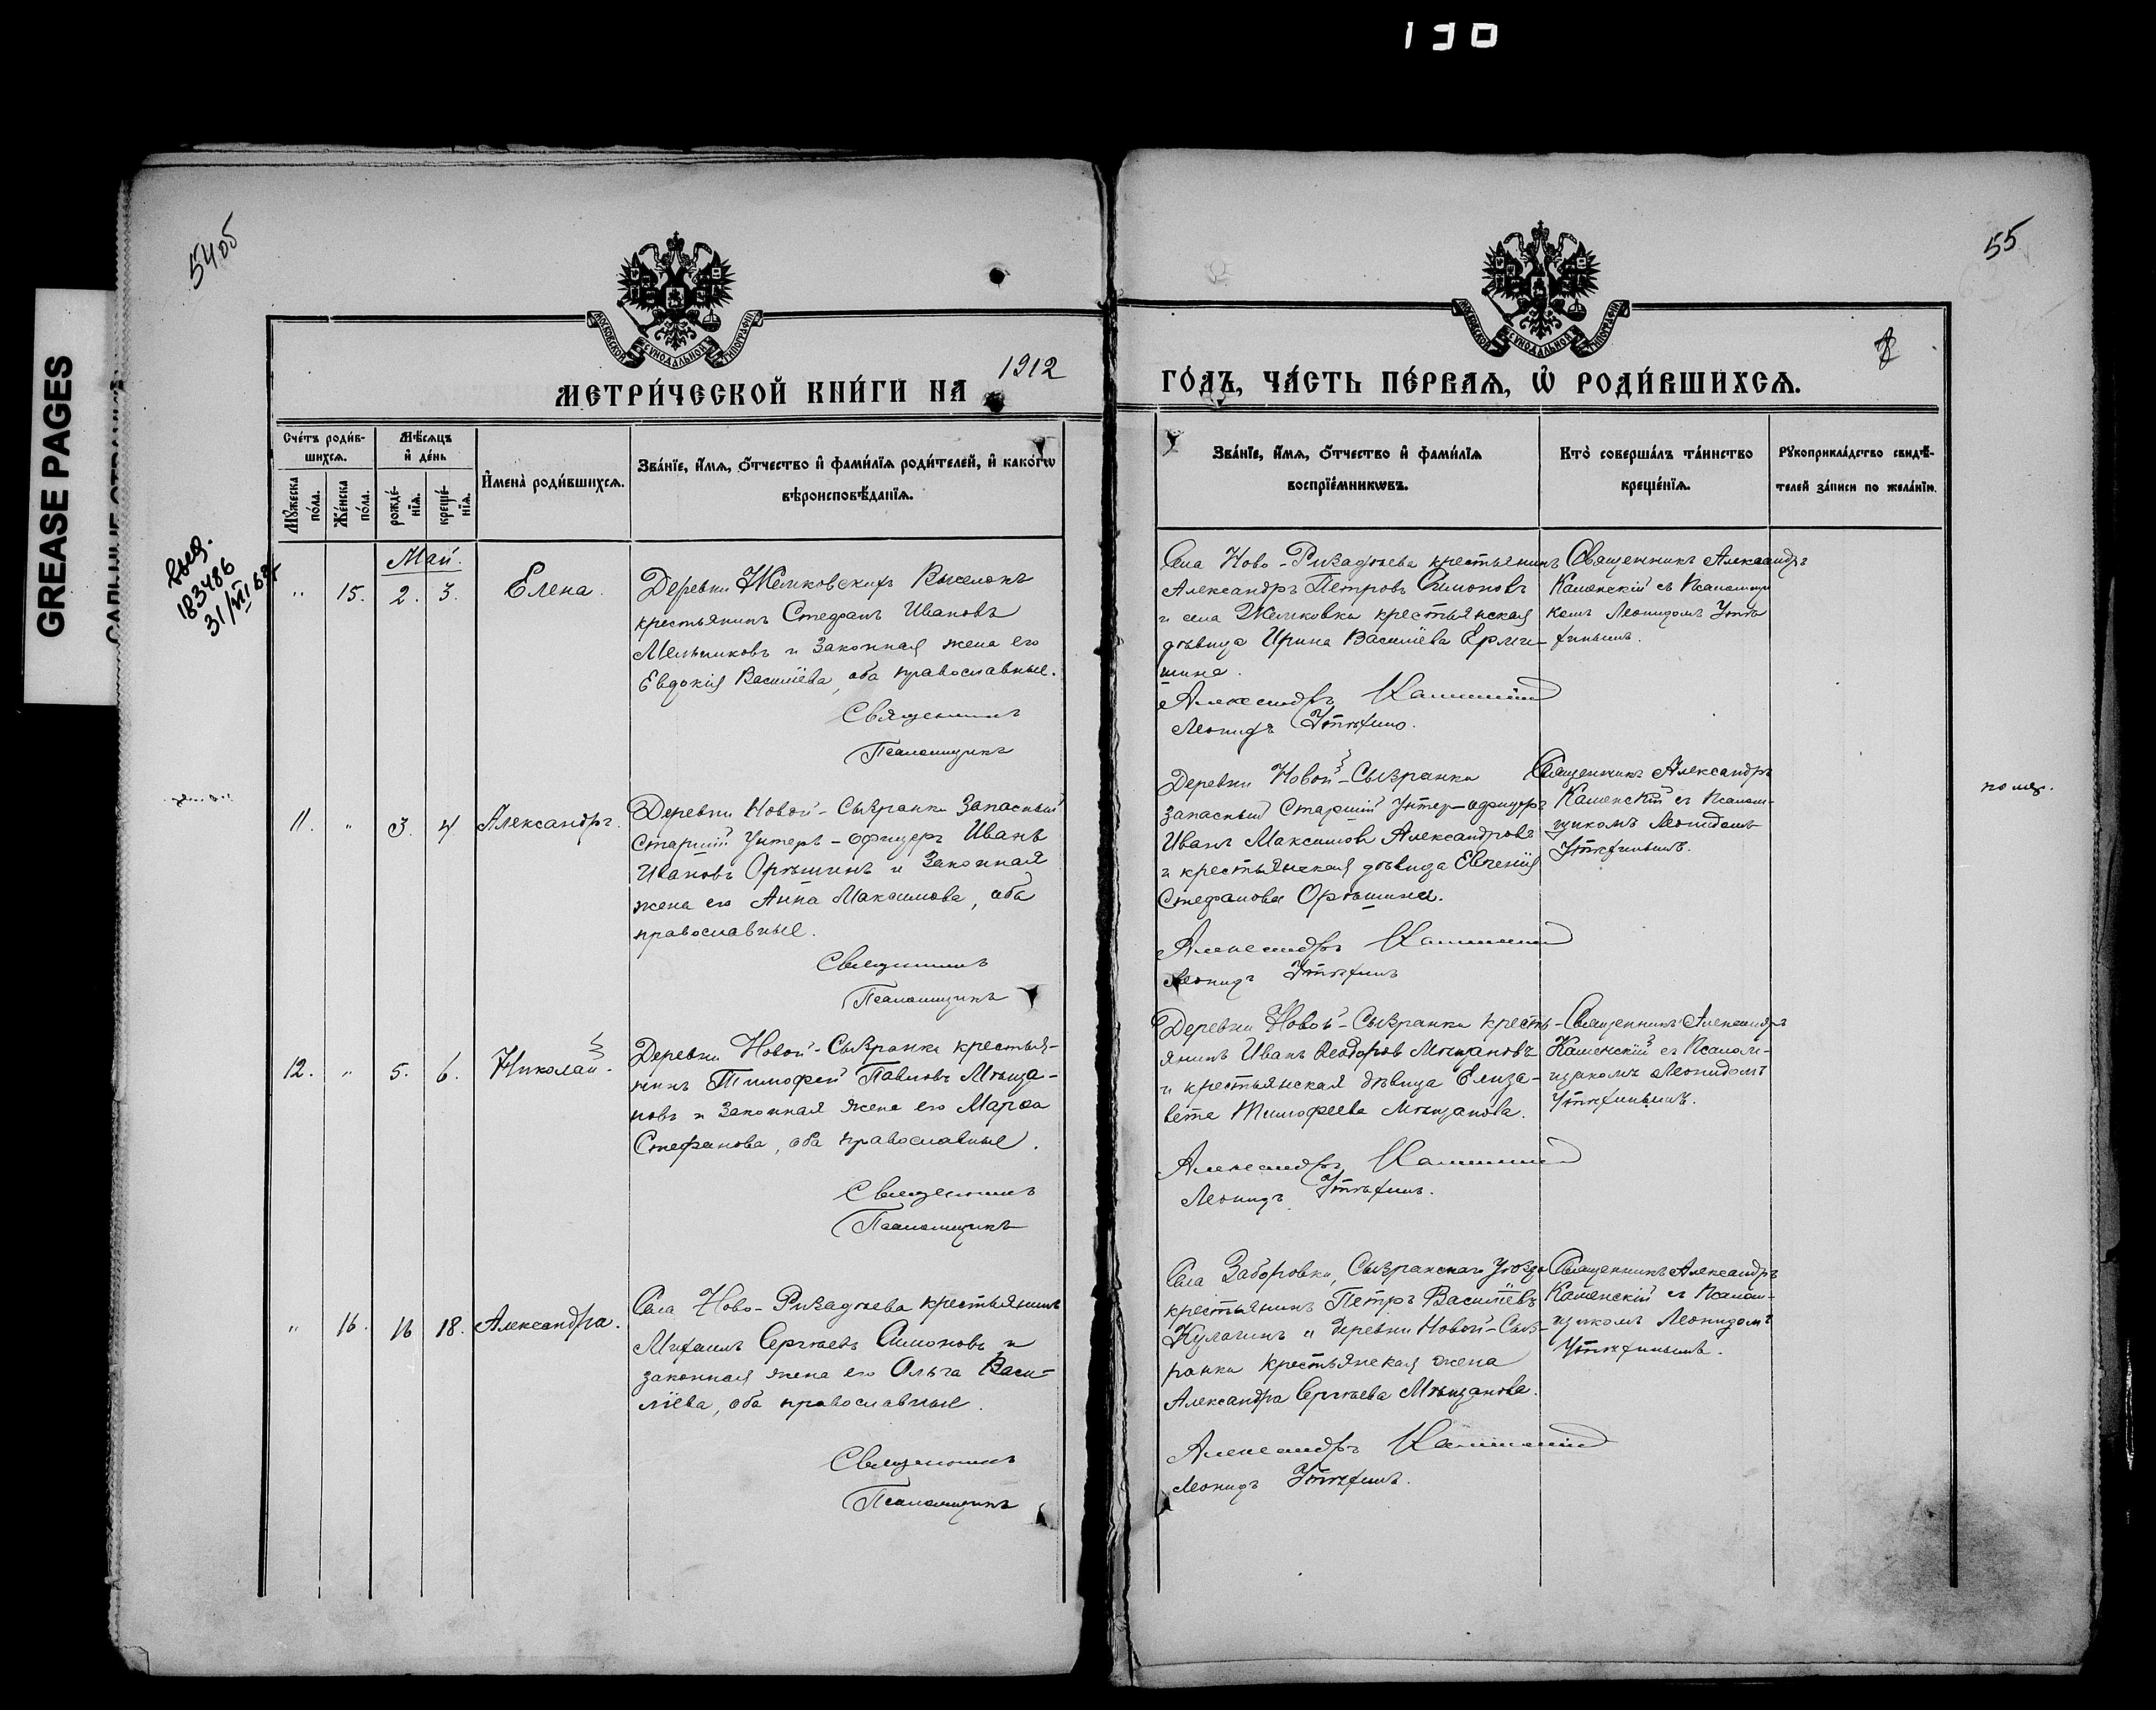 190
GREASE PAGES
54об
55
МОСКОВСКОЙ СѴНОДАЛЬНОЙ ТИПОГРАФІИ
МОСКОВСКОЙ СѴНОДАЛЬНОЙ ТИПОГРАФІИ
МЕТРИ́ЧЕСКОЙ КНИ́ГИ НА 1912
ГО́ДЪ, ЧА́СТЬ ПЕ́РВАѦ, Ѡ҆ РОДИ́ВШИХСѦ.
Сче́тъ роди́в-
шихсѧ.
Мѣ́сѧцъ
и҆ де́нь
Мꙋ́жеска
по́ла.
Же́нска
по́ла.
рожде́-
нїѧ.
креще́-
нїѧ.
И҆мена̀ роди́вшихсѧ.
Зва́нїе, и҆́мѧ, ѻ҆́тчество и҆ фами́лїѧ роди́телей, и҆ како́гѡ
вѣроисповѣ́данїѧ.
Зва́нїе, и҆́мѧ, ѻ҆́тчество и҆ фами́лїѧ
воспрїе́мникѡвъ.
Кто̀ соверша́лъ та́инство
креще́нїѧ.
Рꙋкоприкла́дство свидѣ́-
телей за́писи по жела́нїю.
выд.
183486
Май.
" 15. 2. 3. Елена.
Деревни Жемковскихъ Выселокъ
крестьянинъ Стефанъ Ивановъ
Мельниковъ и законная жена его
Евдокія Василіева, оба православные.
Священникъ
Псаломщикъ
Села Ново-Рязадѣева крестьянинъ
Александръ Петровъ Симоновъ
и села Жемковки крестьянская
дѣвица Ирина Василіева Ерми-
шина.
Александръ Каменскій
Леонидъ Утѣхинъ.
Священникъ Александръ
Каменскій съ Псаломщи
комъ Леонидомъ Утѣ
хинымъ.
11. " 3. 4 Александръ.
Деревни Новой-Сызранки Запасный
Старшій Унтеръ-офицеръ Иванъ
Ивановъ Орѣшинъ и законная
жена его Анна Максимова, оба
православные.
Священникъ
Псаломщикъ
Деревни Новой-Сызранки
запасный Старшій Унтер-офицеръ
Иванъ Максимовъ Александровъ
и крестьянская дѣвица Евгенія
Стефанова Орѣшина.
Александръ Каменскій
Леонидъ Утѣхинъ
Священникъ Александръ
Каменскій съ Псалом-
щикомъ Леонидомъ
Утѣхинымъ.
12. " 5. 6. Николай.
Деревни Новой-Сызранки крестья-
нинъ Тимофей Павловъ Мѣща-
новъ и законная жена его Марѳа
Стефанова, оба православные.
Священникъ
Псаломщикъ
Деревни Новой-Сызранки кресть-
янинъ Иванъ Ѳеодоровъ Мѣщановъ
и крестьянская дѣвица Елиза-
вета Тимофеева Мѣщанова.
Александръ Каменскій
Леонидъ Утѣхинъ.
Священникъ Александръ
Каменскій съ Псалом-
щикомъ Леонидомъ
Утѣхинымъ.
" 16. 16 18. Александра.
Села Ново-Рязадѣева крестьянинъ
Михаилъ Сергѣевъ Симоновъ и
законная жена его Ольга Васи-
ліева, оба православные.
Священникъ
Псаломщикъ
Села Заборовки, Сызранскаго уѣзда
крестьянинъ Петръ Василіевъ
Кулагинъ и деревни Новой-Сыз-
ранки крестьянская жена
Александра Сергѣева Мѣщанова.
Александръ Каменскій
Леонидъ Утѣхинъ.
Священникъ Александръ
Каменскій съ Псалом-
щикомъ Леонидомъ
Утѣхинымъ.